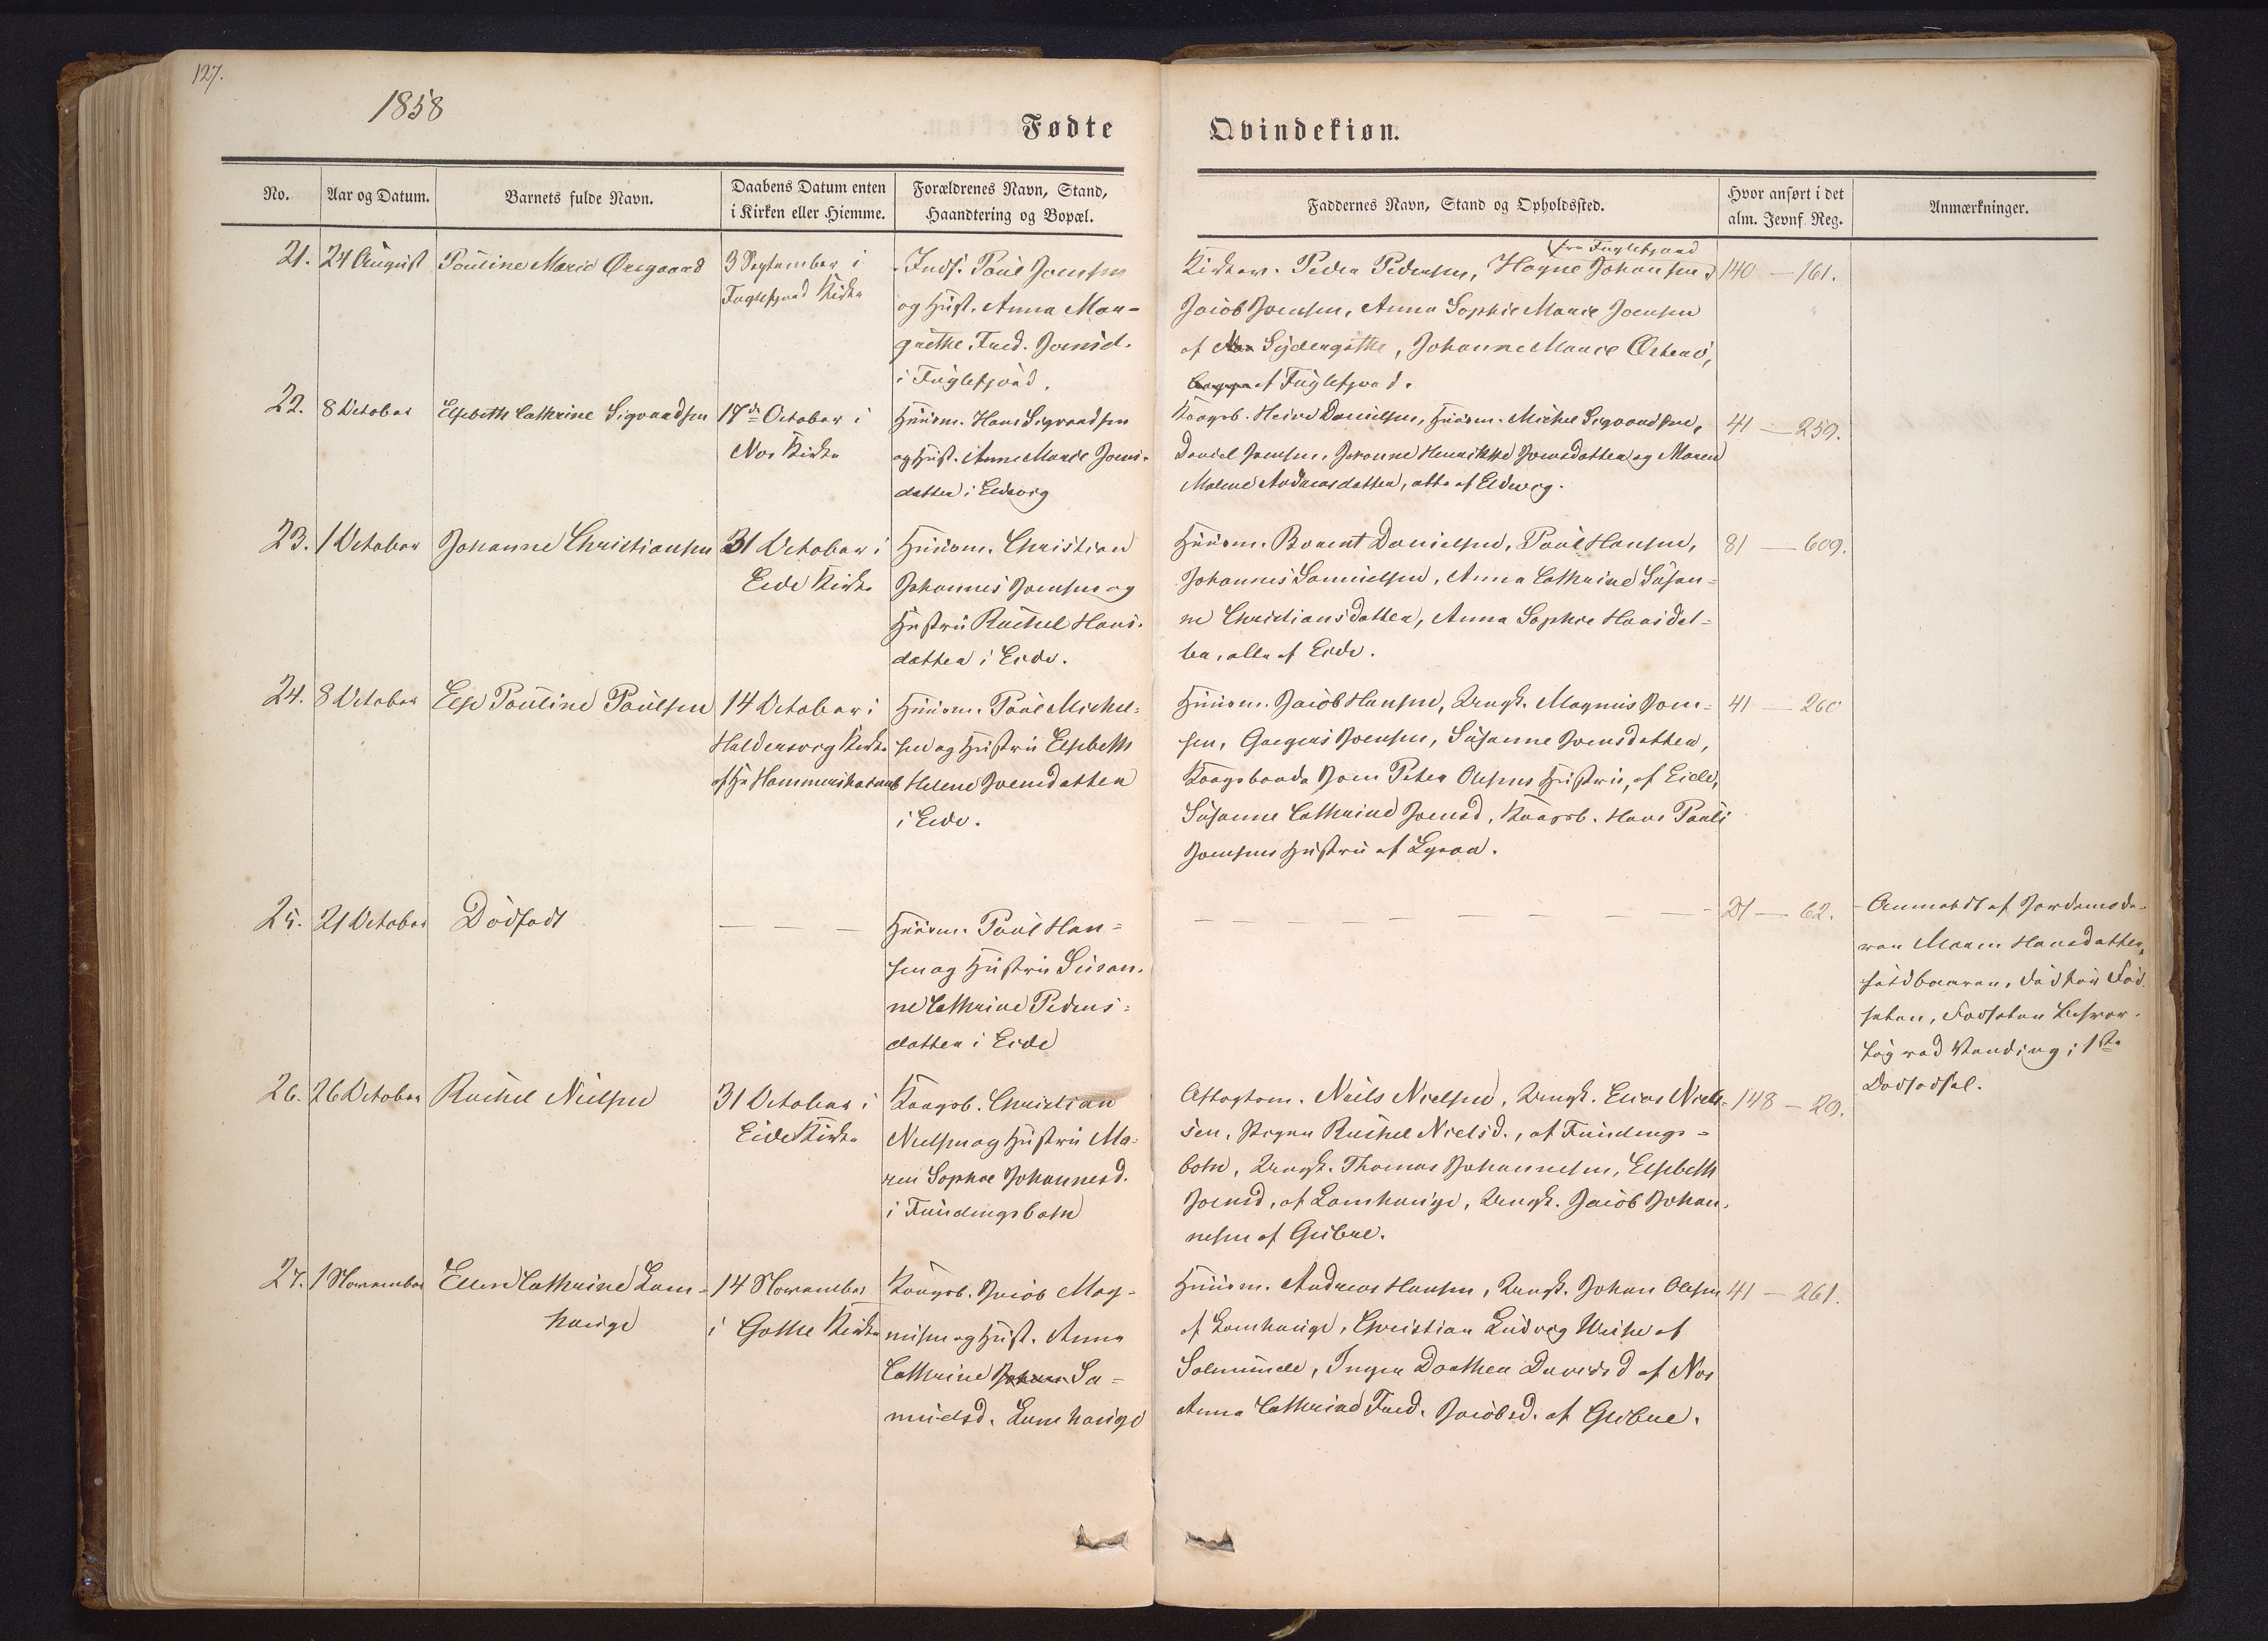 127.
1858
Fødte
Qvindekiøn.
No.
Aar og Datum.
Barnets fulde Navn.
Daabens Datum enten
i Kirken eller Hiemme.
Forældrenes Navn, Stand,
Haandtering og Bopæl.
Faddernes Navn, Stand og Opholdssted.
Hvor anført i det
alm. Jevnf. Reg.
Anmærkninger.
21.
24 August
Pouline Marie Øregaard
3 September i
Fuglefjord Kirke
Inds. Poul Joensen
og Hust. Anna Mar-
grethe Fred. Joensd.
i Fuglefjord.
fra Fuglefjord
Kirkev. Peder Pedersen, Hogne Johansen,
Jacob Joensen, Anna Sophie Marie Joensen
af Sydergøthe, Johanne Marie Østerø,
af Fuglefjord.
140 — 161.
22.
8 October
Elsebeth Cathrine Sigvardsen
17de October i
Nes Kirke
Huusm. Hans Sigvardsen
og Hust. Anne Marie Joens-
datter i Eldevig
Kongsb. Heine Danielsen, Huusm. Michel Sigvardsen,
Daniel Joensen, Johanne Henrikke Joensdatter og Maren
Malene Andreasdatter, alle af Eldevig.
41 — 259.
23.
1 October
Johanne Christiansen
31 October i
Eide Kirke
Huusm. Christian
Johannes Joensen og
Hustru Rachel Hans-
datter i Eide.
Huusm. Berent Danielsen, Poul Hansen,
Johannes Samuelsen, Anna Cathrine Susan-
ne Christiansdatter, Anna Sophie Hansdat-
ter, alle af Eide.
81 — 609.
24.
8 October
Else Pouline Poulsen
14 October i
Haldersvig Kirke
af Hr Hammershaimb
Huusm. Poul Michel-
sen og Hustru Elsebeth
Helene Joensdatter
i Eide.
Huusm. Jacob Hansen, Ungk. Magnus Joen-
sen, Joensen, Susanne Joensdatter,
Kongsbonde Joen Peter Olesens Hustru, af Eide,
Susanne Cathrine Joensd, Kongsb. Hans Pauli
Joensens Hustru af
41 — 260
25.
21 October
Dødfødt
— — —
Huusm. Poul Han-
sen og Hustru Susan-
ne Cathrine Peders-
datter i Eide
— — — — — — —
21 — 62.
Anmeldt af Jordemode-
ren Maren Hansdatter,
Fød-
selen, Fødselen besvær-
lig ved Vending; 1ste
Dødfødsel.
26.
26 October
Rachel Nielsen
31 October i
Eide Kirke
Kongsb. Christian
Nielsen og Hustru Ma-
ren Sophie Johannesd.
i Fundingsbotn
Aftægtsm. Niels Nielsen, Ungk. Elias Niel-
sen, Pigen Rachel Nielsd., af Fundings-
botn, Ungk. Thomas Johannesen, Elsebeth
Joensd, af Lamhauge, Ungk. Jacob Johan-
nesen af Glibre.
148 — 29.
27.
1 November
Ellen Cathrine Lam-
hauge
14 November
i Gothe Kirke
Kongsb. Jacob Mag-
nusen og Hust. Anna
Cathrine Sa-
muelsd. Lamhauge
Huusm. Andreas Hansen, Ungk. Johan Olesen
af Lamhauge, Christian Ludvig Weihe af
Solmunde, Inger Dorthea Davidsd af Nes
Anna Cathrine Fred. Jacobsd. af Glibre.
41 — 261.